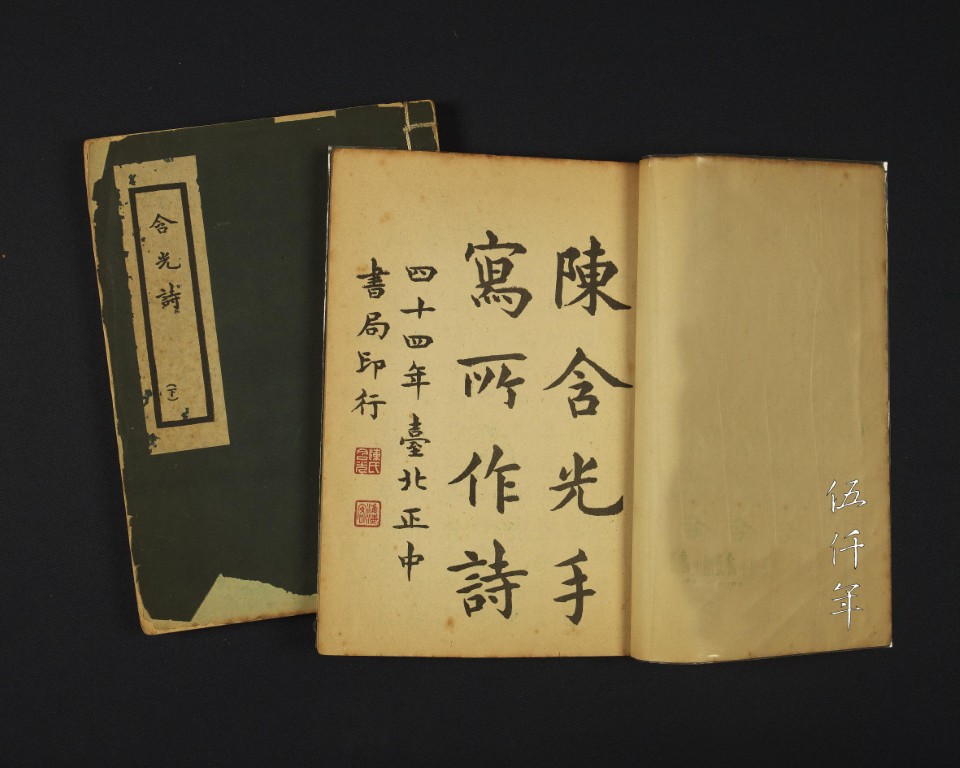 含光詩
(下)
陳含光手
寫所作詩
四十四年臺北正中
書局印行
伍仟年